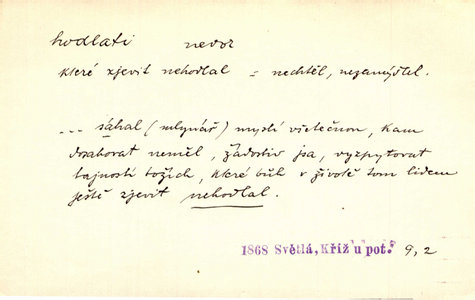 hodlati nedok
které zjevit nehodlal = nechtěl, nezamýšlel.
... sáhal (mlynář) myslí všetečnou, kam
dosahovat neměl, žádostiv jsa, vyzpytovat
tajnosti božích, které bůh v životě tom lidem
ještě zjevit nehodlal.
1868 Světlá, Kříž u pot. 9,2